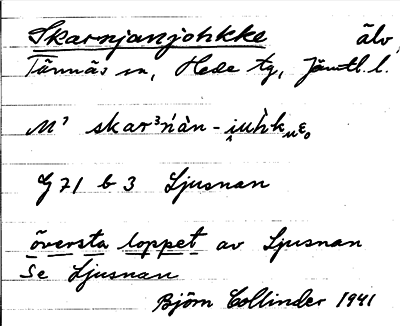 Skarnjanjohkke älv,
Tännäs sn, Hede tg, Jämtl. l.
M⁷ skar³ńàn-i̭ùh̀kᵤε₀
G 71 b 3 Ljusnan
översta loppet av Ljusnan
Se Ljusnan
Björn Collinder 1941